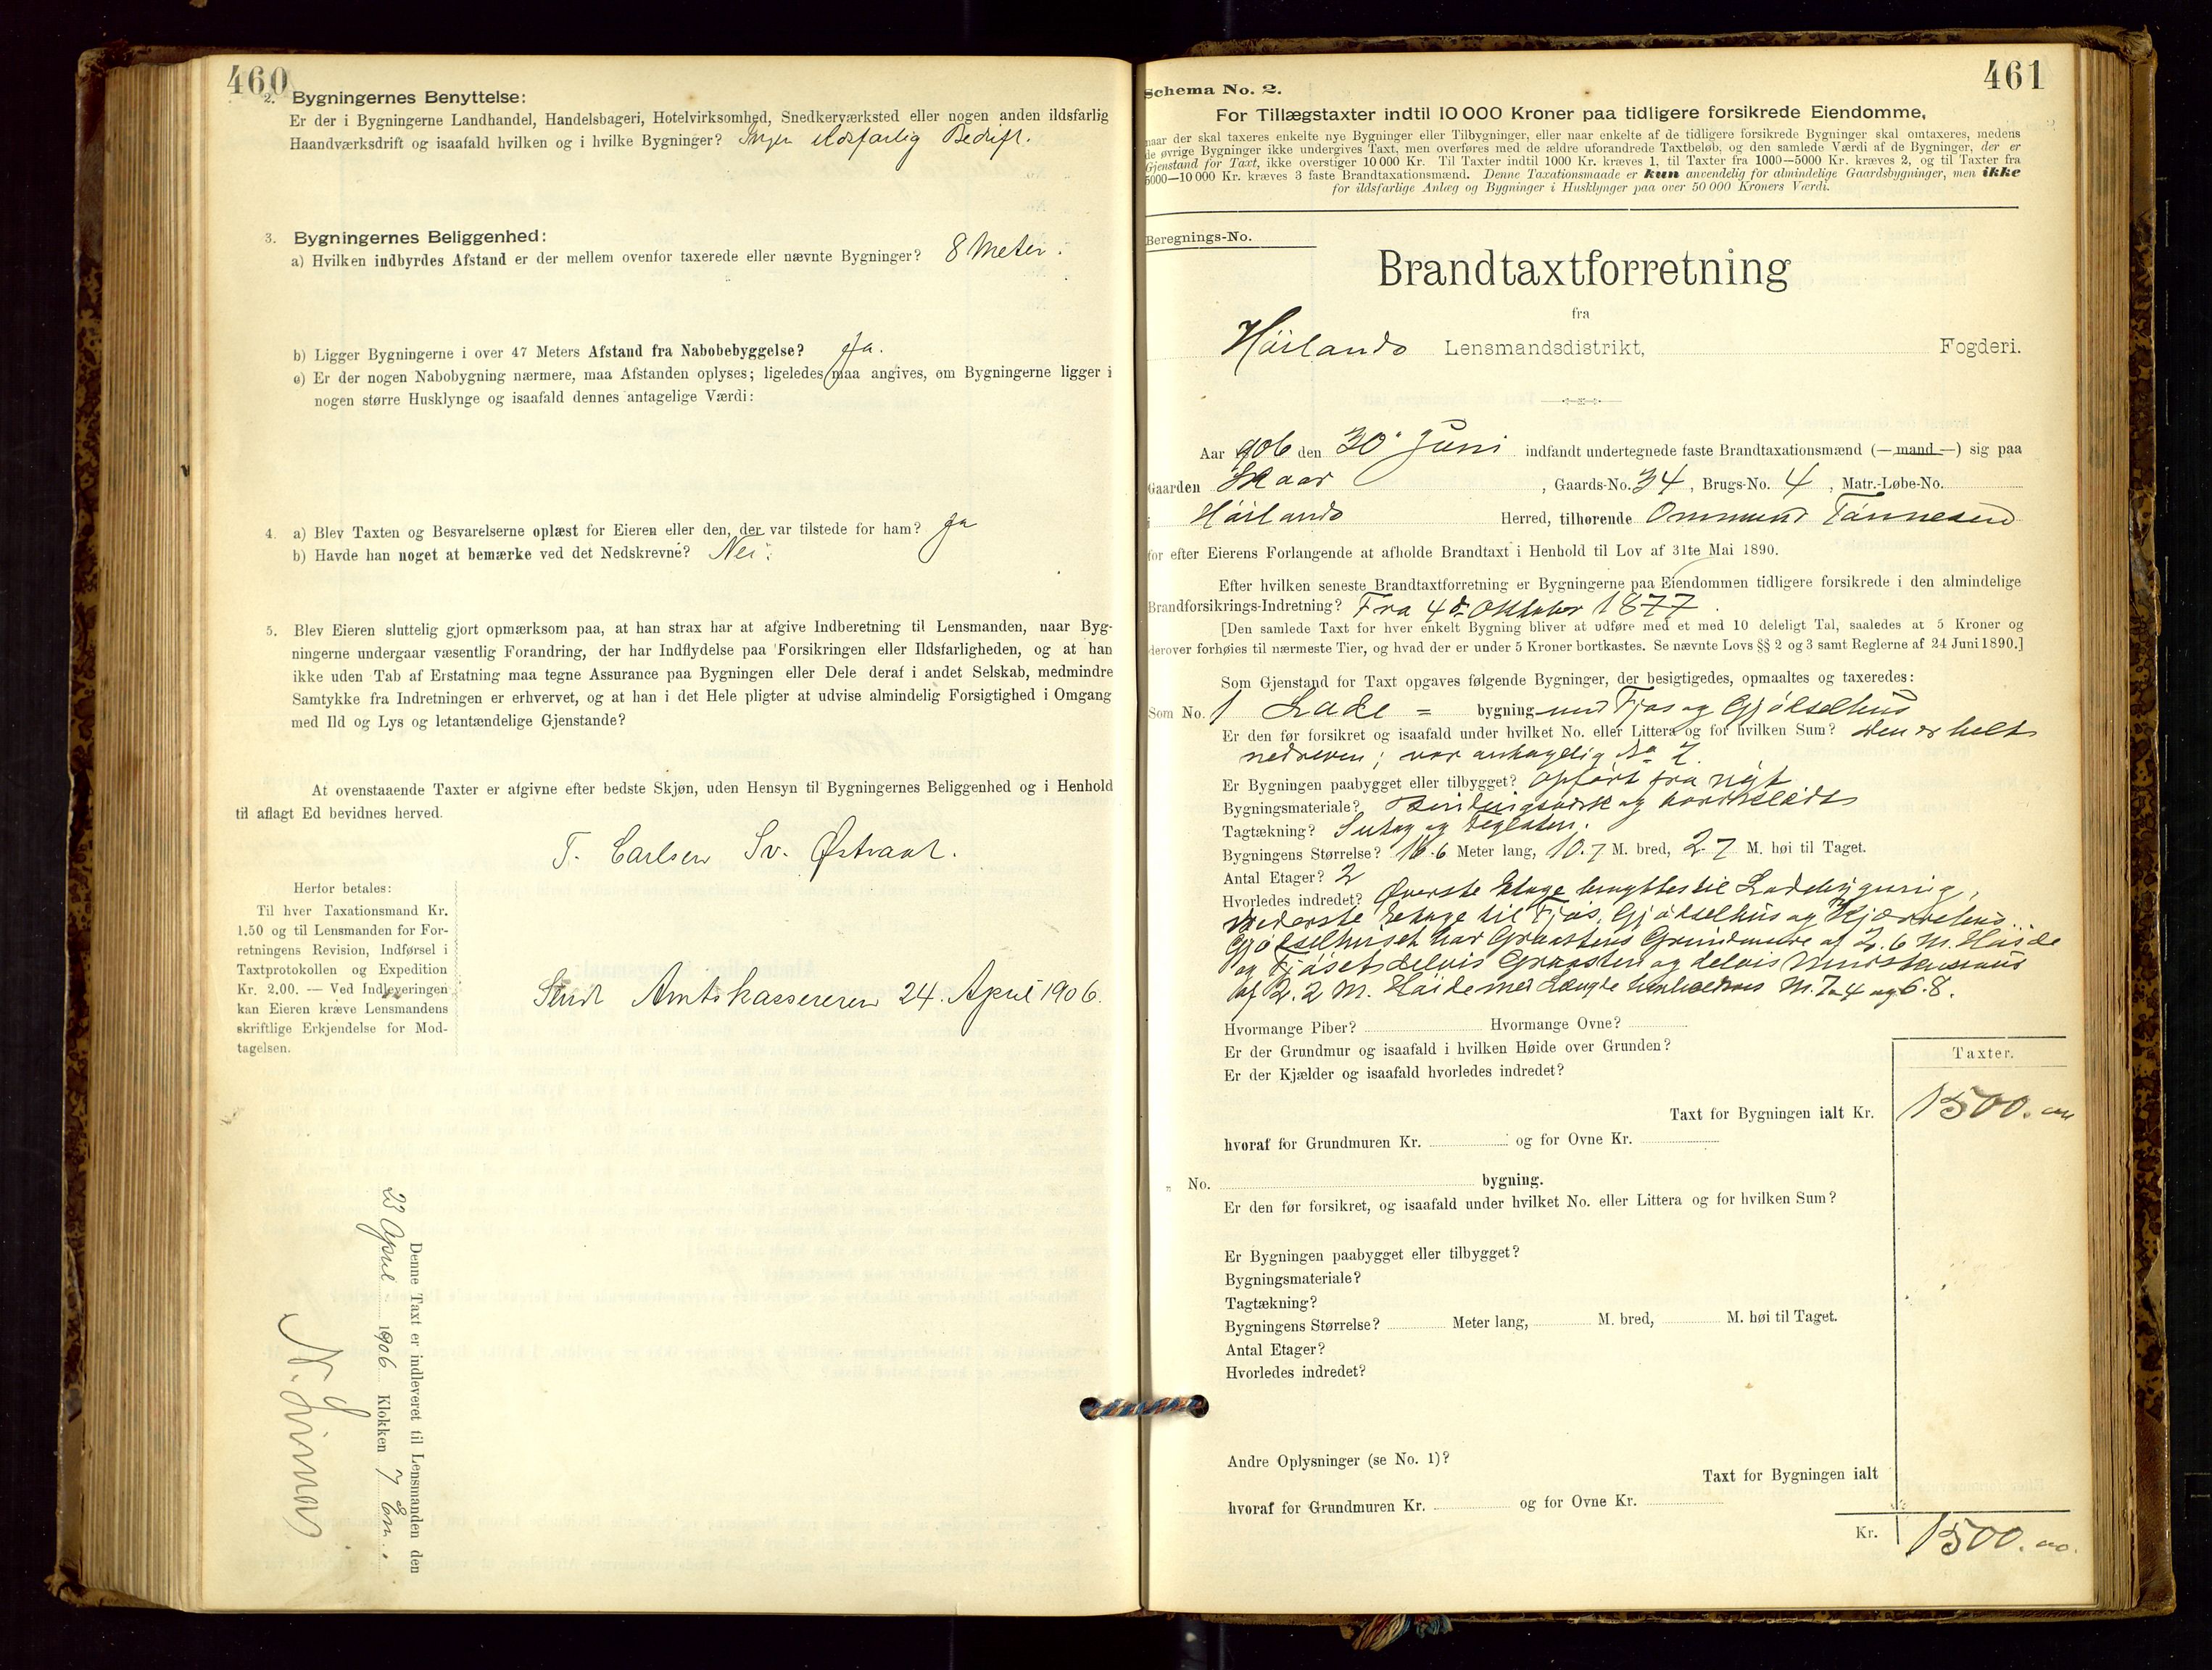 460
2. Bygningernes Benyttelse:
Er der i Bygningerne Landhandel, Handelsbageri, Hotelvirksomhed, Snedkerværksted eller nogen anden ildsfarlig
Haandværksdrift og isaafald hvilken og i hvilke Bygninger? Ingen ildsfarlig Bedrift.
3. Bygningernes Beliggenhed:
a) Hvilken indbyrdes Afstand er der mellem ovenfor taxerede eller nævnte Bygninger? 8 Meter.
b) Ligger Bygningerne i over 47 Meters Afstand fra Nabobebyggelse? Ja.
c) Er der nogen Nabobygning nærmere, maa Afstanden oplyses; ligeledes maa angives, om Bygningerne ligger i
nogen større Husklynge og isaafald dennes antagelige Værdi:
4. a) Blev Taxten og Besvarelserne oplæst for Eieren eller den, der var tilstede for ham? Ja
b) Havde han noget at bemærke ved det Nedskrevne? Nei.
5. Blev Eieren sluttelig gjort opmærksom paa, at han strax har at afgive Indberetning til Lensmanden, naar Byg-
ningerne undergaar væsentlig Forandring, der har Indflydelse paa Forsikringen eller Ildsfarligheden, og at han
ikke uden Tab af Erstatning maa tegne Assurance paa Bygningen eller Dele deraf i andet Selskab, medmindre
Samtykke fra Indretningen er erhvervet, og at han i det Hele pligter at udvise almindelig Forsigtighed i Omgang
med Ild og Lys og letantændelige Gjenstande?
At ovenstaaende Taxter er afgivne efter bedste Skjøn, uden Hensyn til Bygningernes Beliggenhed og i Henhold
til aflagt Ed bevidnes herved.
T. Carlsen Sv. Østraat.
Herfor betales:
Til hver Taxationsmand Kr.
1.50 og til Lensmanden for For-
retningens Revision, Indførsel i
Taxtprotokollen og Expedition
Kr. 2.00. — Ved Indleveringen
kan Eieren kræve Lensmandens
skriftlige Erkjendelse for Mod-
tagelsen.
Sendt Amtskassereren 24. April 1906.
Denne Taxt er indleveret til Lensmanden den
23 April 1906 Klokken 7 Em.
461
Schema No. 2.
For Tillægstaxter indtil 10 000 Kroner paa tidligere forsikrede Eiendomme,
naar der skal taxeres enkelte nye Bygninger eller Tilbygninger, eller naar enkelte af de tidligere forsikrede Bygninger skal omtaxeres, medens
de øvrige Bygninger ikke undergives Taxt, men overføres med de ældre uforandrede Taxtbeløb, og den samlede Værdi af de Bygninger, der er
Gjenstand for Taxt, ikke overstiger 10 000 Kr. Til Taxter indtil 1000 Kr. kræves 1, til Taxter fra 1000—5000 Kr. kræves 2, og til Taxter fra
5000—10 000 Kr. kræves 3 faste Brandtaxationsmænd. Denne Taxationsmaade er kun anvendelig for almindelige Gaardsbygninger, men ikke
for ildsfarlige Anlæg og Bygninger i Husklynger paa over 50 000 Kroners Værdi.
Beregnings-No.
Brandtaxtforretning
fra
Høilands Lensmandsdistrikt, Fogderi.
Aar 1906 den 30. Juni indfandt undertegnede faste Brandtaxationsmænd (—mand—) sig paa
Gaarden Skaar, Gaards-No. 34, Brugs-No. 4, Matr.-Løbe-No.
i Høilands Herred, tilhørende Ommund Tønnesen
for efter Eierens Forlangende at afholde Brandtaxt i Henhold til Lov af 31te Mai 1890.
Efter hvilken seneste Brandtaxtforretning er Bygningerne paa Eiendommen tidligere forsikrede i den almindelige
Brandforsikrings-Indretning? Fra 4de Oktober 1877.
[Den samlede Taxt for hver enkelt Bygning bliver at udføre med et med 10 deleligt Tal, saaledes at 5 Kroner og
derover forhøies til nærmeste Tier, og hvad der er under 5 Kroner bortkastes. Se nævnte Lovs §§ 2 og 3 samt Reglerne af 24 Juni 1890.]
Som Gjenstand for Taxt opgaves følgende Bygninger, der besigtigedes, opmaaltes og taxeredes:
Som No. 1 Lade = bygning med Fjøs og Gjødselhus
Er den før forsikret og isaafald under hvilket No. eller Littera og for hvilken Sum? Den er helt
nedreven; var antagelig No 2.
Er Bygningen paabygget eller tilbygget? Opført fra nyt
Bygningsmateriale? Bindingsværk og bordklædt
Tagtækning? Sutag og Teglsten.
Bygningens Størrelse? 16.6 Meter lang, 10.7 M. bred, 2.7 M. høi til Taget.
Antal Etager? 2
Hvorledes indredet? Øverste Etage benyttes til Ladebygning,
nederste Etage til Fjøs, Gjødselhus og Kjørrehus.
Gjødselhuset har Graastens Grundmure af 2.6 M. Høide
og Fjøsets delvis Graasten og delvis
af 2.2 M. Høide med Længde henholdsvis M. 7.4 og 6.8.
Hvormange Piber? Hvormange Ovne?
Er der Grundmur og isaafald i hvilken Høide over Grunden?
Er der Kjælder og isaafald hvorledes indredet?
Taxter.
Taxt for Bygningen ialt Kr. 1500.00
hvoraf for Grundmuren Kr. og for Ovne Kr.
„ No. bygning.
Er den før forsikret, og isaafald under hvilket No. eller Littera og for hvilken Sum?
Er Bygningen paabygget eller tilbygget?
Bygningsmateriale?
Tagtækning?
Bygningens Størrelse? Meter lang, M. bred, M. høi til Taget.
Antal Etager?
Hvorledes indredet?
Andre Oplysninger (se No. 1)?
Taxt for Bygningen ialt
hvoraf for Grundmuren Kr. og for Ovne Kr.
Kr. 1500.00.